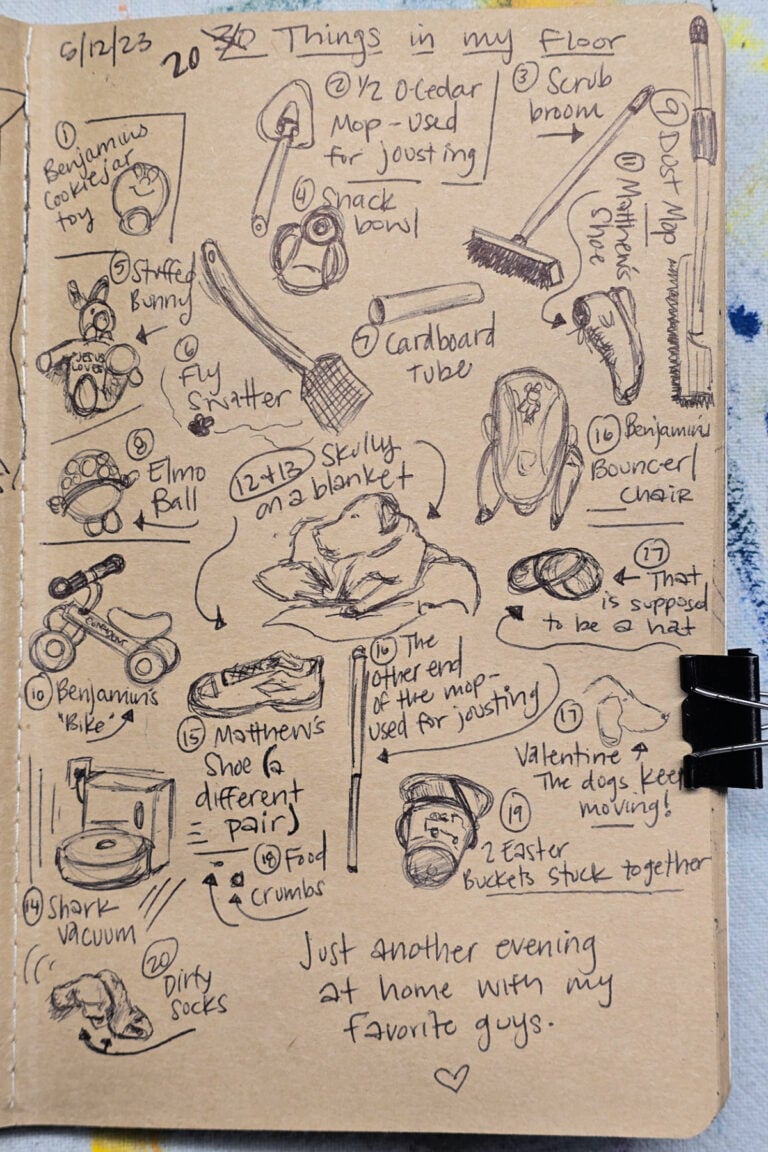 5/12/23
20 30 Things in my Floor
① Benjamin's
Cookiejar
toy
② 1/2 O-Cedar
Mop - used
for jousting
③ Scrub
broom
④ Snack
bowl
⑤ Stuffed
Bunny
JESUS
LOVES
⑥
Fly
Swatter
⑦ Cardboard
Tube
⑧
Elmo
Ball
⑨ Dust Mop
⑩ Benjamin's
"Bike"
⑪ Matthew's
Shoe
12+13 Skully
on a blanket
⑭ Shark
vacuum
⑮ Matthew's
Shoe (a
different
pair)
⑯ Benjamin's
Bouncer/
Chair
⑯ The
other end
of the mop-
used for jousting
⑰
That
is supposed
to be a hat
⑰
Valentine
The dogs keep
moving!
⑱ Food
Crumbs
⑲
2 Easter
Buckets stuck together
⑳ Dirty
Socks
Just another evening
at home with my
favorite guys.